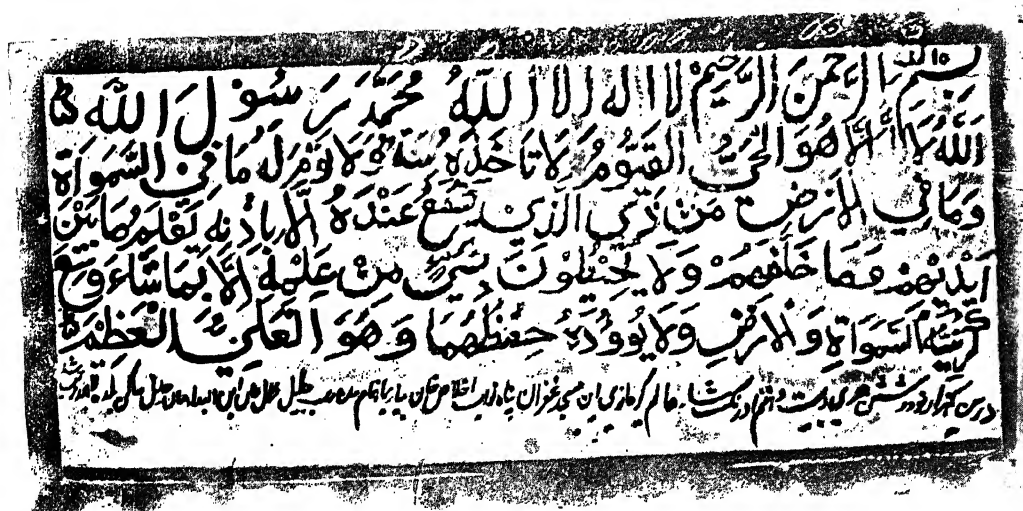 بسم الله الرحمن الرحيم لا اله الا الله محمد رسول الله
الله لا اله الا هو الحي القيوم لا تاخذه سنة ولا نوم له ما في السمواة
وما في الارض من ذي الذي يشفع عنده الا باذنه يعلم ما بين
ايديهم وما خلفهم ولا يحيطون بشيء من علمه الا بما شاء وسع
كرسيه السمواة والارض ولا يووده حفظهما وهو العلي العظيم
درسن شش هجری عالم گیر غازی این مسجد غفران پناه نواب اخلاص خان